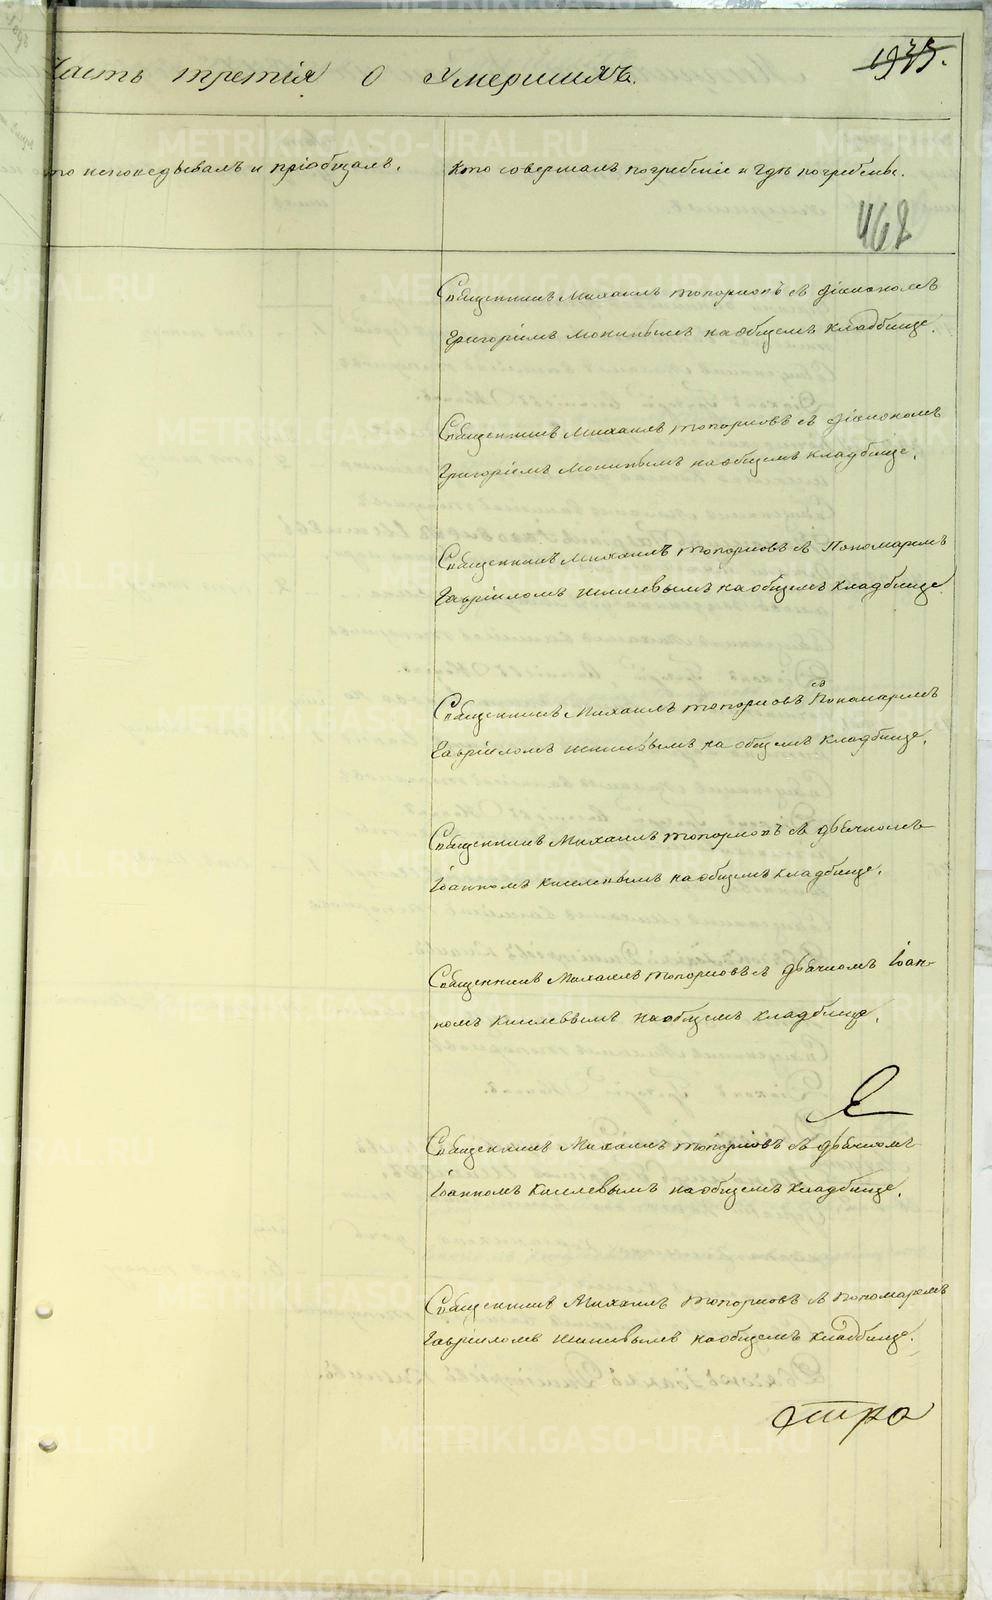 Часть третія о Умершихъ.
кто исповѣдывалъ и пріобщалъ.
кто совершалъ погребеніе и гдѣ погребены.
462
Священникъ Михаилъ Топорковъ съ діакономъ
Григоріемъ на общемъ кладбище.
Священникъ Михаилъ Топорковъ съ діакономъ
Григоріемъ на общемъ кладбище.
Священникъ Михаилъ Топорковъ съ Пономаремъ
Гавріиломъ на общемъ кладбище
Священникъ Михаилъ Топорковъ съ Пономаремъ
Гавріиломъ на общемъ кладбище.
Священникъ Михаилъ Топорковъ съ дьячкомъ
Іоанномъ Киселевымъ на общемъ кладбище.
Священникъ Михаилъ Топорковъ съ дьячкомъ Іоан-
номъ Киселевымъ на общемъ кладбище.
Священникъ Михаилъ Топорковъ съ дьячкомъ
Іоанномъ Киселевымъ на общемъ кладбище.
Священникъ Михаилъ Топорковъ съ пономаремъ
Гавріиломъ на общемъ кладбище.
METRIKI.GASO-URAL.RU